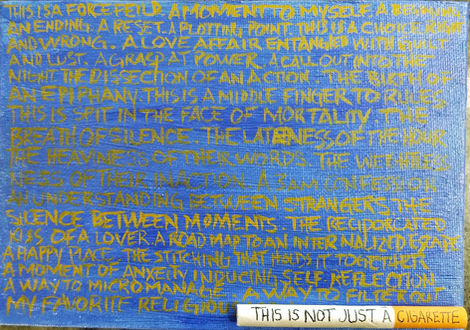 THIS IS A FORCE FEILD. A MOMENT TO MYSELF. A BEGINNING.
AN ENDING. A RESET. A PLOTTING POINT. THIS IS A CHOICE.
AND WRONG. A LOVE AFFAIR ENTANGLED WITH GUILT
AND LUST. A GRASP AT POWER. A CALL OUT INTO THE
NIGHT. THE DISSECTION OF AN ACTION. THE BIRTH OF
AN EPIPHANY. THIS IS A MIDDLE FINGER TO RULES.
THIS IS SPIT IN THE FACE OF MORTALITY. THE
BREATH OF SILENCE. THE LATENESS OF THE HOUR.
THE HEAVINESS OF THEIR WORDS. THE
NESS OF THEIR INACTION. A 3AM CONFESSION.
AN UNDERSTANDING BETWEEN STRANGERS. THE
SILENCE BETWEEN MOMENTS. THE RECIPORCATED
KISS OF A LOVER. A ROAD MAP TO AN INTERNALIZED ESCAPE.
A HAPPY PLACE. THE STICHING THAT HOLDS IT TOGETHER.
A MOMENT OF ANXEITY INDUCING SELF REFLECTION.
A WAY TO MICROMANAGE. A WAY TO FILTER OUT
MY FAVORITE RELIGION
THIS IS NOT JUST A CIGARETTE